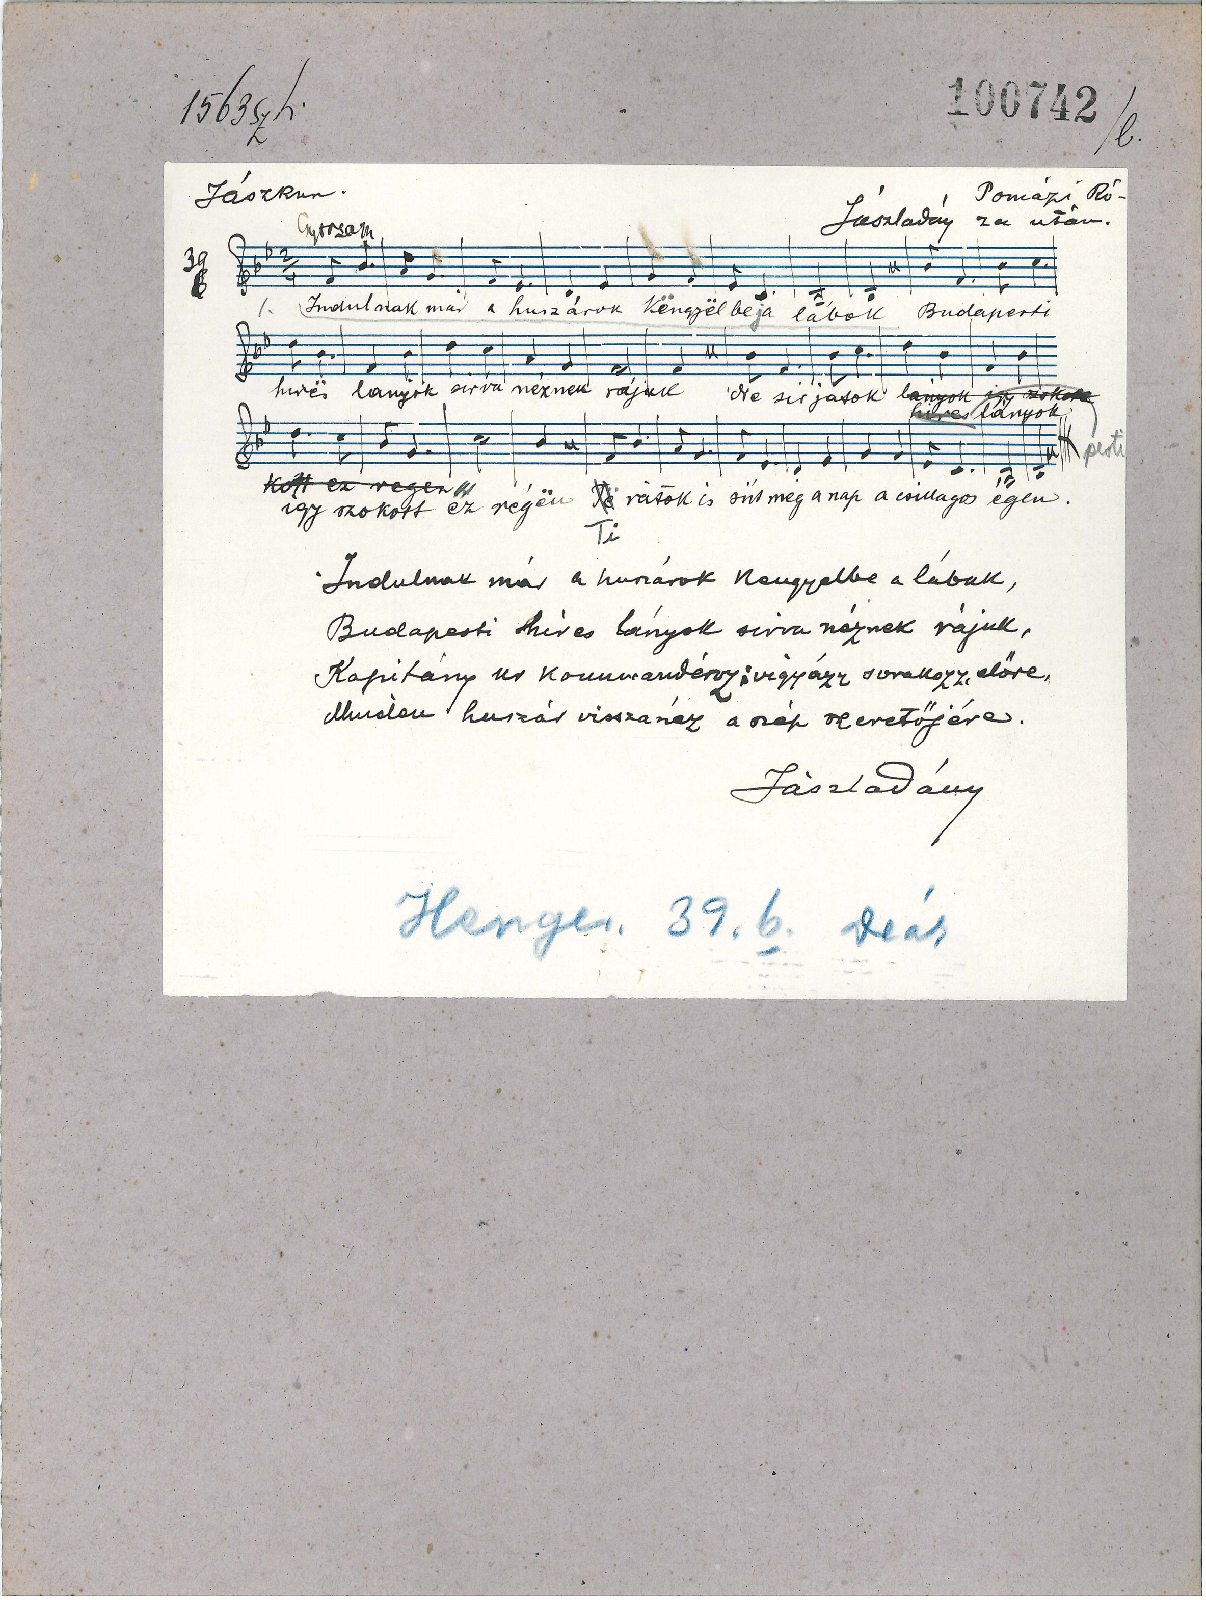 1563 sz h.
100742 /b.
Jászkun.
Pomázi Ró-
Jászladány za után.
Gyorsan
39
b
2/4
1. Indulnak már a huszárok Këngyëlbe ja lábok Budapesti
hirës lanyok sirva néznek rájuk Ne sirjatok lanyok igy szokott
hires lányok
pesti
kott ez regen
igy szokott ëz régën Të rátok is süt még a nap a csillagos égen.
Ti
Indulnak már a huszárok Kengyelbe a lábuk,
Budapesti híres lányok sirva néznek rájuk,
Kapitány ur kommandéroz; vigyázz sorakozz, előre,
Minden huszár visszanéz a szép szeretőjére.
Jászladány
Henger. 39. b. deás